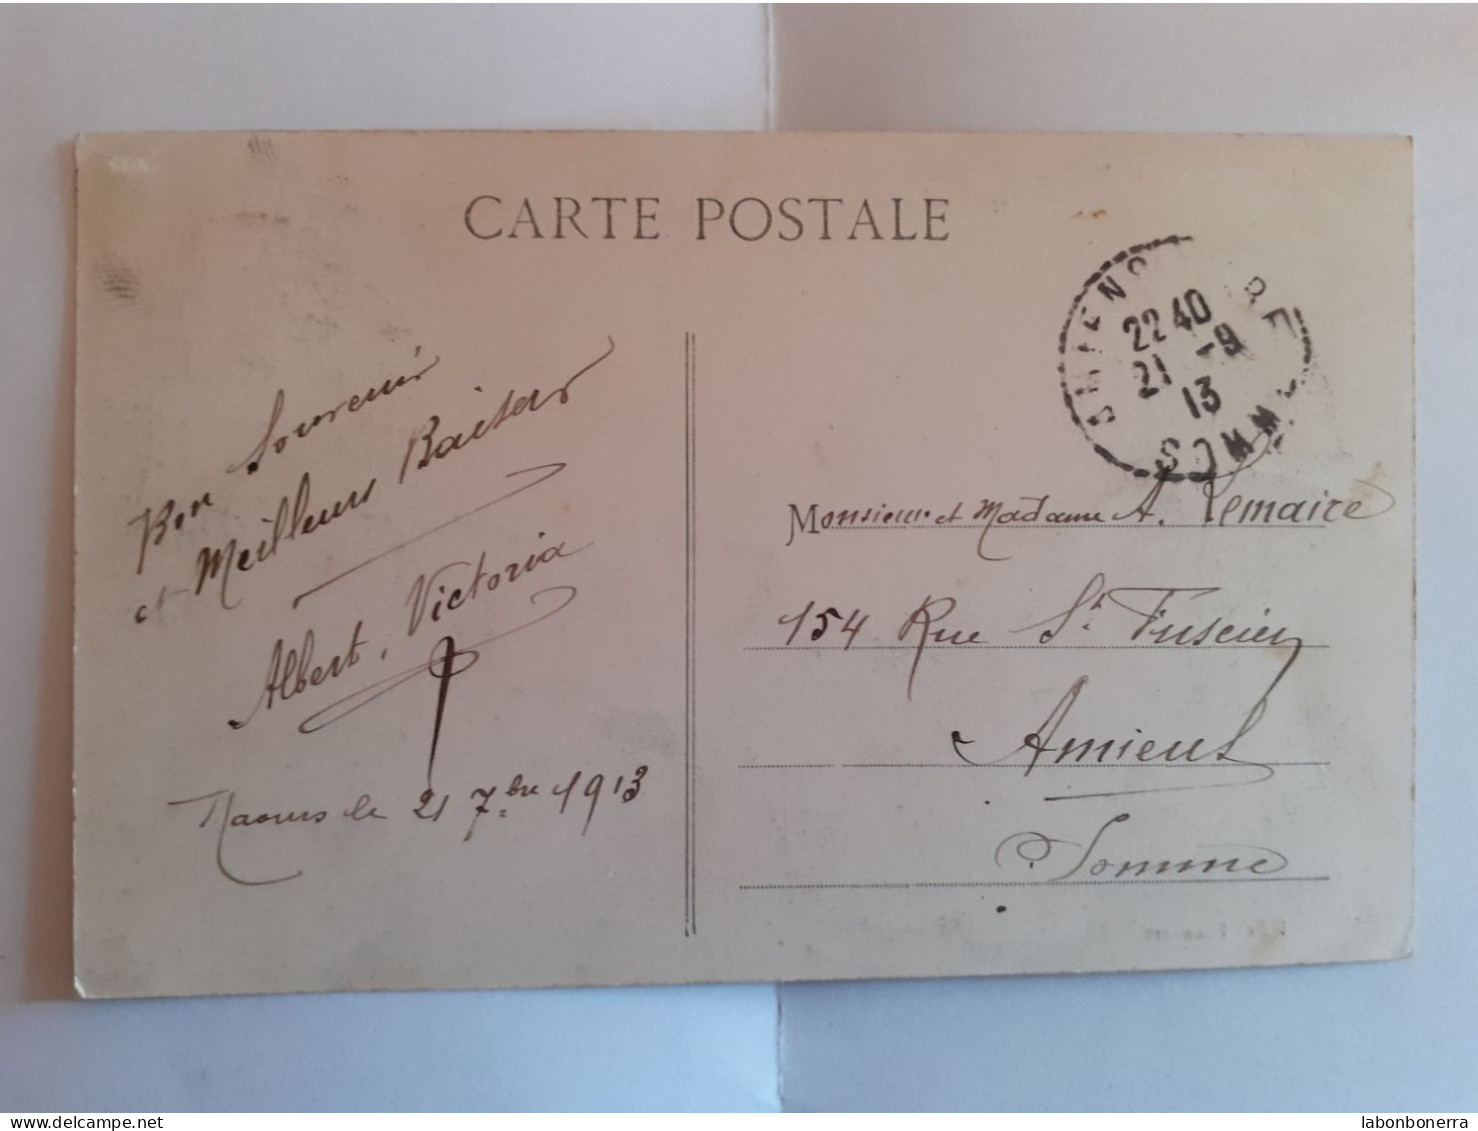 CARTE POSTALE
AMIENS GARE
22 40
21 -9
13
SOMME
Bon Souvenir
et Meilleurs Baisers
Albert, Victoria
Naours le 21 7bre 1913
Monsieur et Madame A. Lemaire
154 Rue St Fuscien
Amiens
Somme
labonbonerra